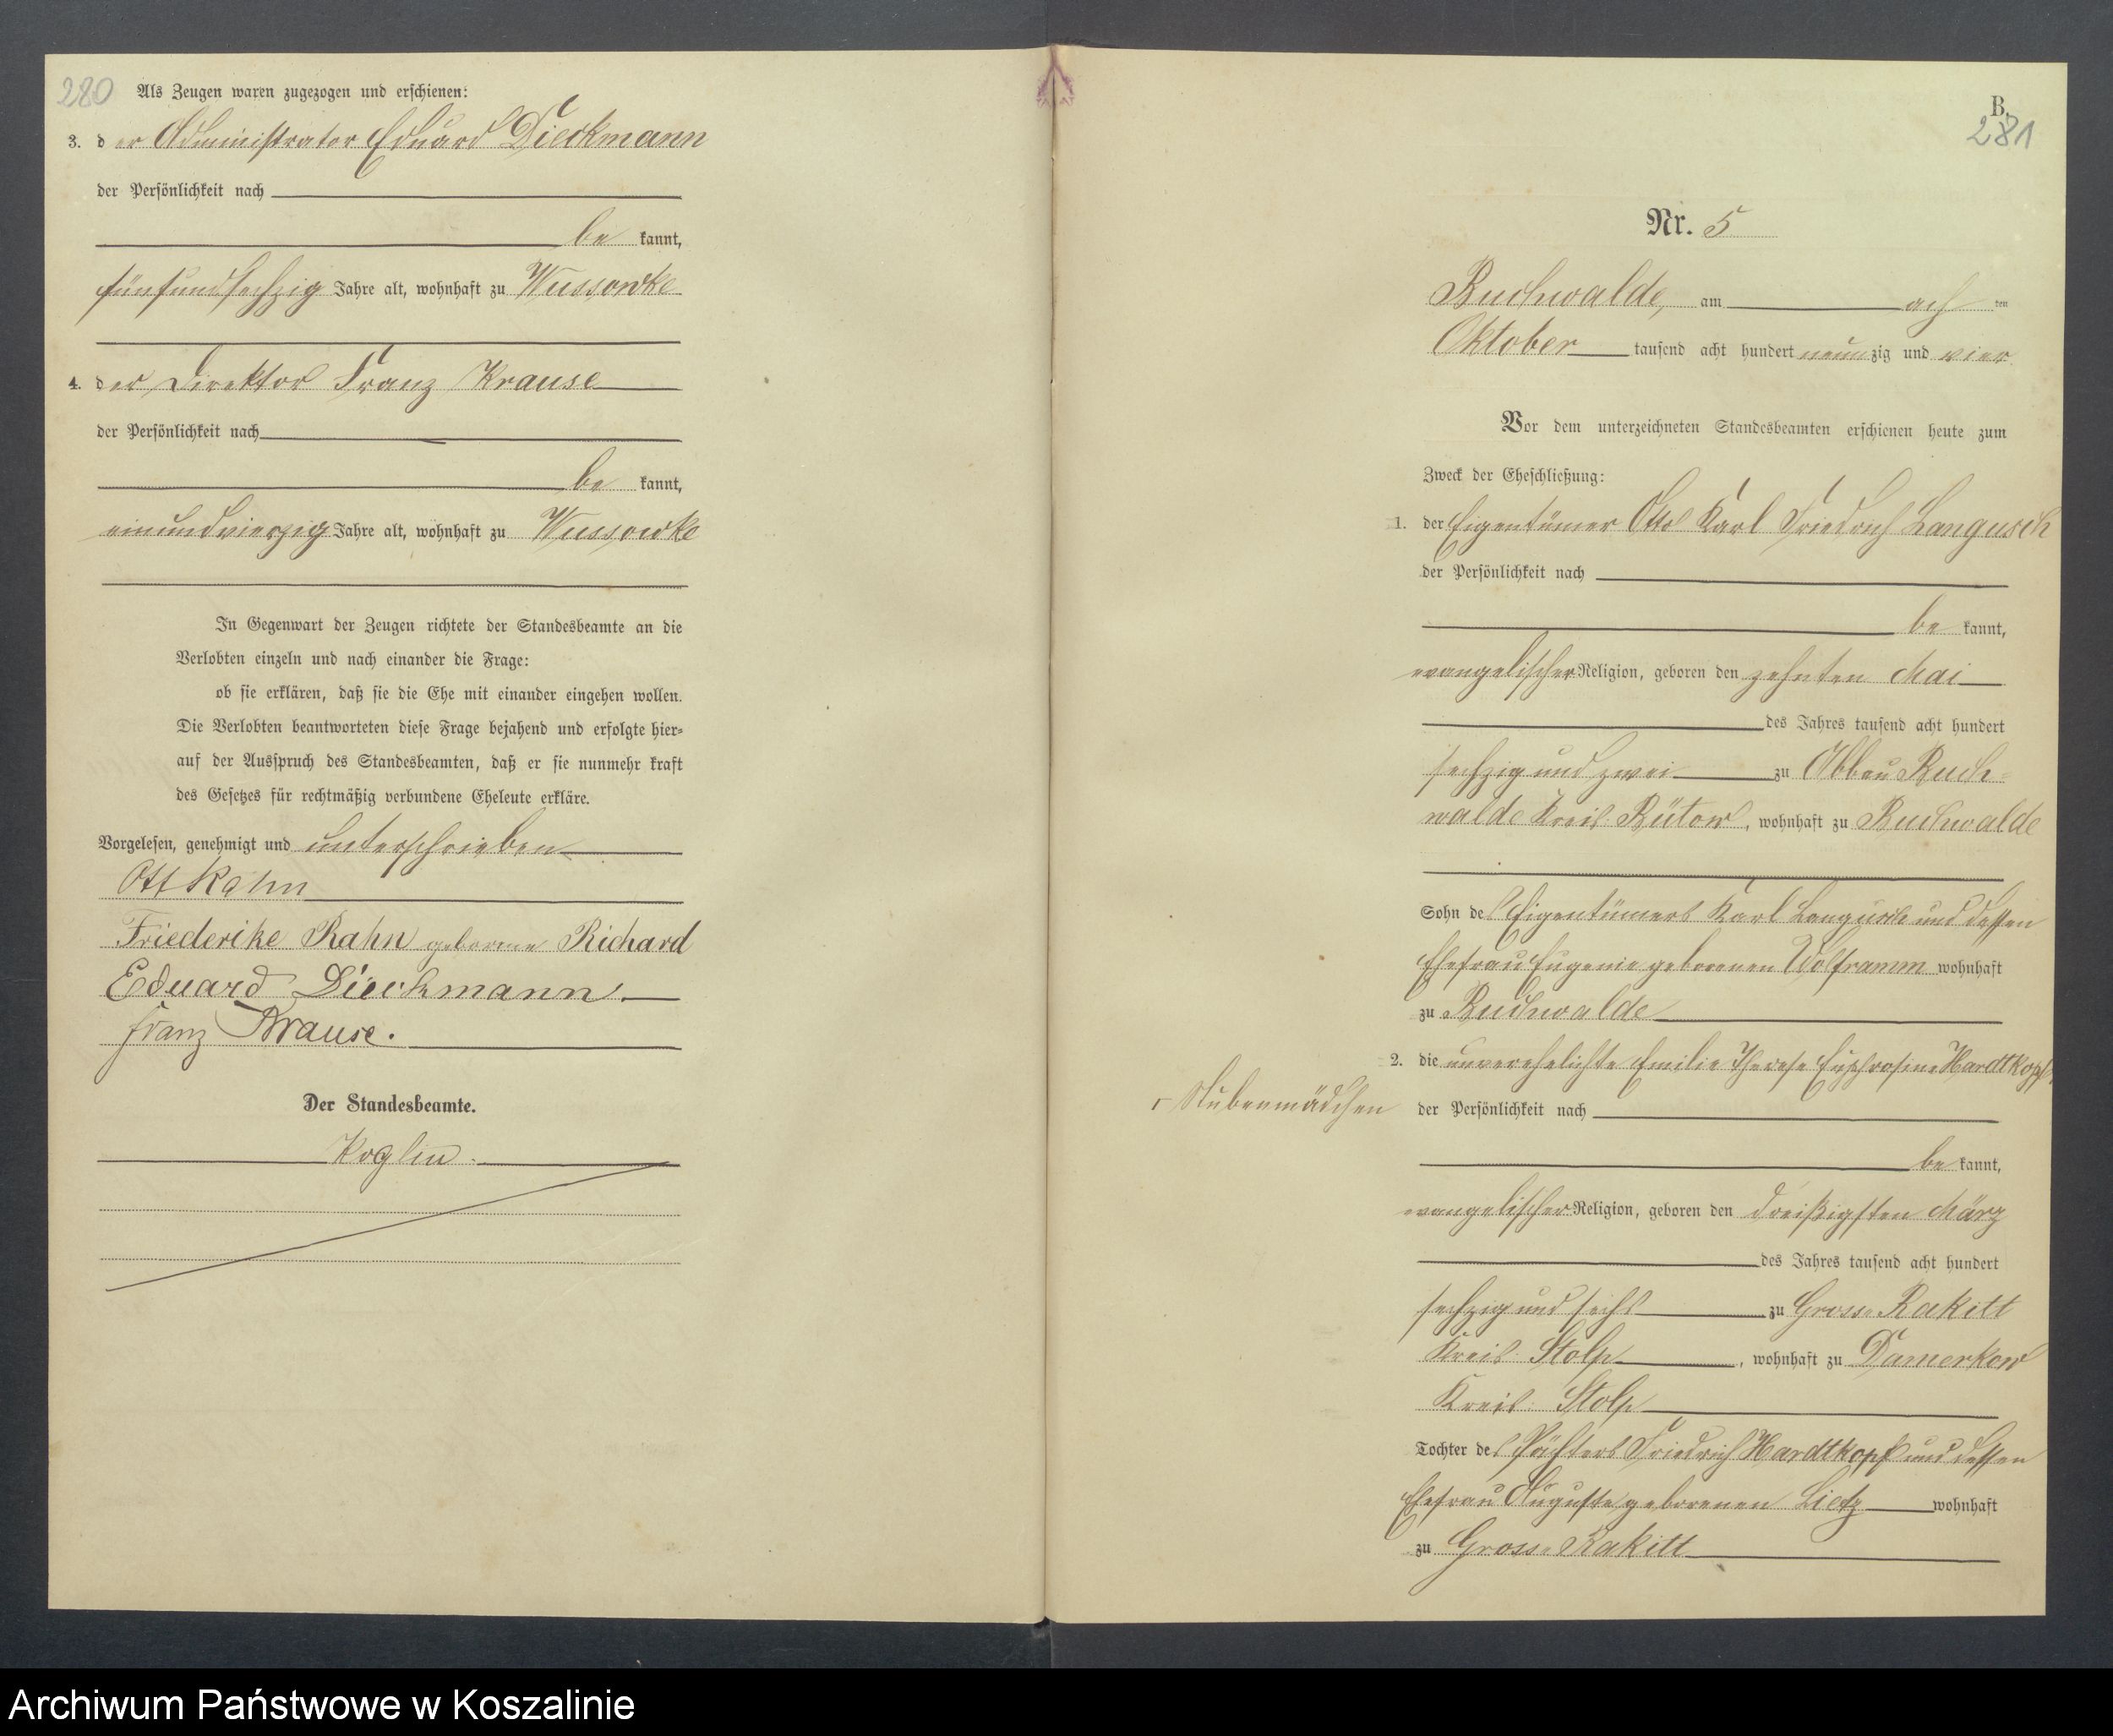 280
Als Zeugen waren zugezogen und erschienen:
3. der Administrator Eduard Dieckmann
der Persönlichkeit nach
be kannt,
fünfundsechzig Jahre alt, wohnhaft zu Wussowke
4. der Direktor Franz Krause
der Persönlichkeit nach
be kannt,
einundvierzig Jahre alt, wohnhaft zu Wussowke
In Gegenwart der Zeugen richtete der Standesbeamte an die
Verlobten einzeln und nach einander die Frage:
ob sie erklären, daß sie die Ehe mit einander eingehen wollen.
Die Verlobten beantworteten diese Frage bejahend und erfolgte hier-
auf der Ausspruch des Standesbeamten, daß er sie nunmehr kraft
des Gesetzes für rechtmäßig verbundene Eheleute erkläre.
Vorgelesen, genehmigt und unterschrieben
Rahn
Friederike Rahn geborene Richard
Eduard Dieckmann
Franz Krause.
Der Standesbeamte.
Koglin.
B.
281
Nr. 5
Buchwalde, am ach ten
Oktober tausend acht hundert neunzig und vier
Vor dem unterzeichneten Standesbeamten erschienen heute zum
Zweck der Eheschließung:
1. der Eigentümer Otto Karl Friedrich Langusch
der Persönlichkeit nach
be kannt,
evangelischer Religion, geboren den zehnten Mai
des Jahres tausend acht hundert
sechzig und zwei zu Abbau Buch-
walde Kreis Bütow, wohnhaft zu Buchwalde
Sohn des Eigentümers Karl Langusch und dessen
Ehefrau Eugenie geborenen Wolframm wohnhaft
zu Buchwalde
2. die unverehelichte Emilie Therese Euphrosine Hardtkopf
Stubenmädchen
der Persönlichkeit nach
be kannt,
evangelischer Religion, geboren den dreißigsten März
des Jahres tausend acht hundert
sechzig und sechs zu Gross-Rakitt
Kreis Stolp, wohnhaft zu Damerkow
Kreis Stolp
Tochter des Pächters Friedrich Hardtkopf und dessen
Ehefrau Auguste geborenen Lietz wohnhaft
zu Gross-Rakitt
Archiwum Państwowe w Koszalinie